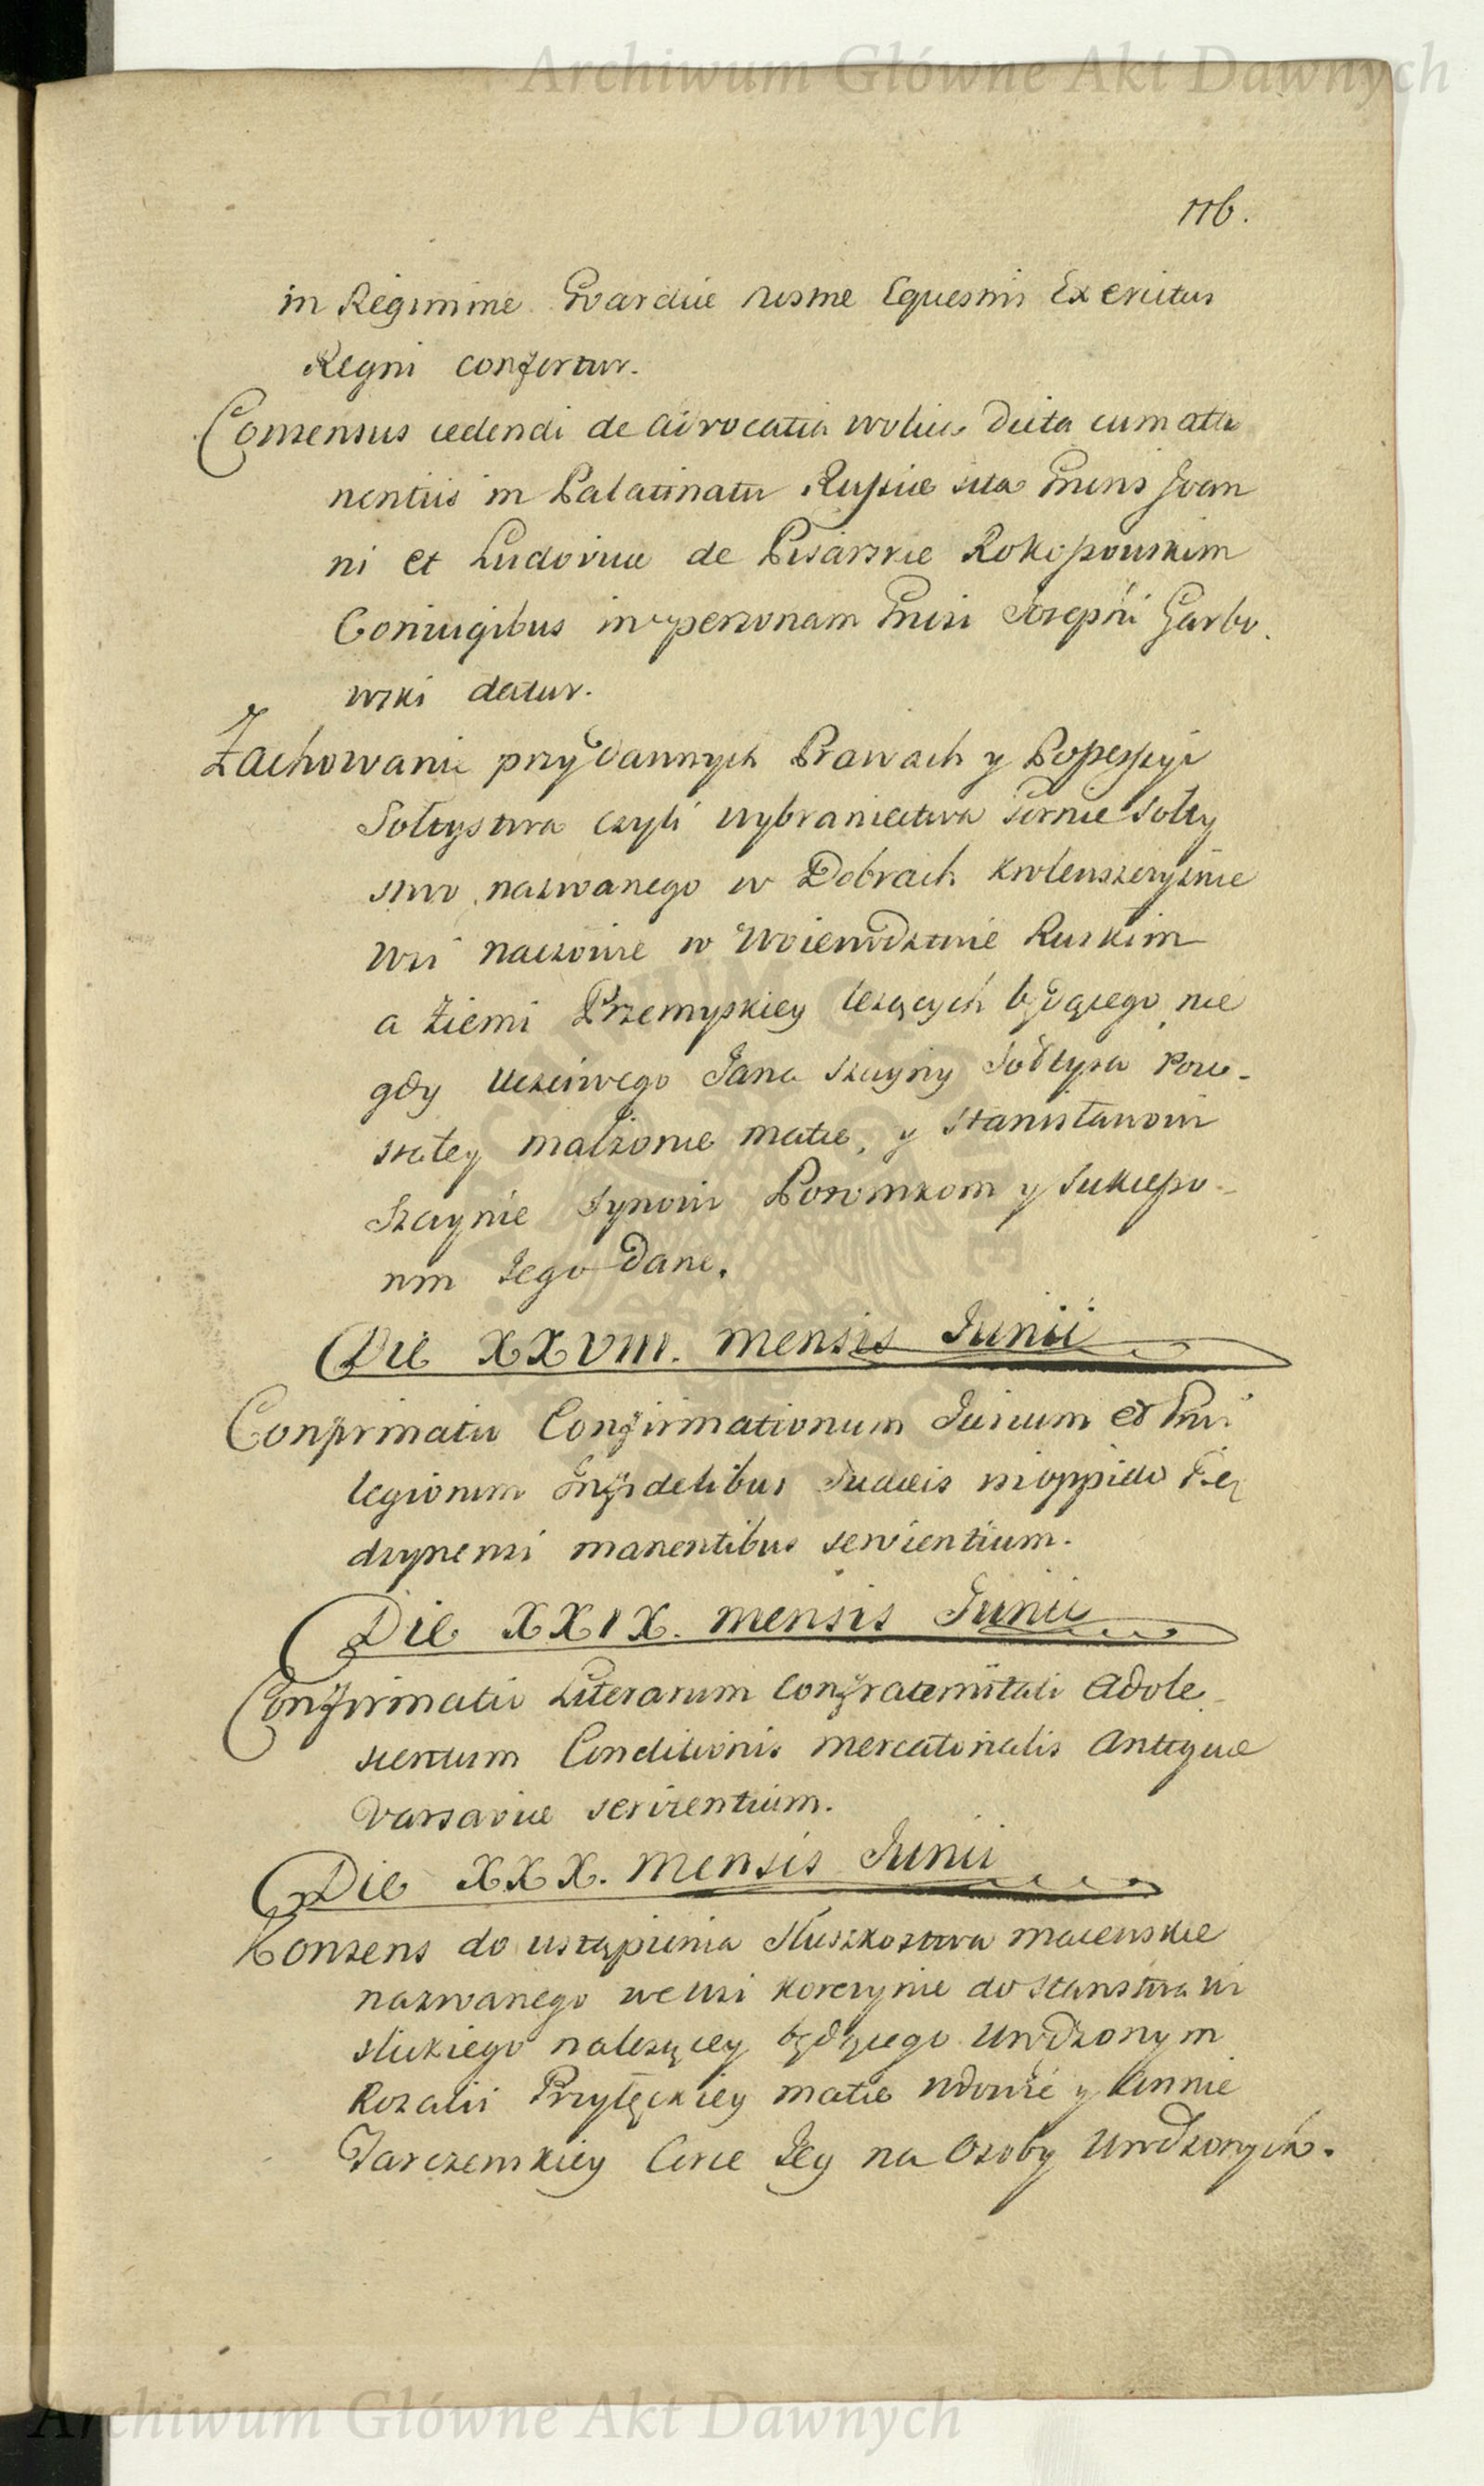 Archiwum Główne Akt Dawnych
116.
in Regimine Gvardiæ nostræ Equestris Exercitus
Regni confertur.
Consensus cedendi de Advocatia Wolica dicta cum atti
nentiis in Palatinatu Russiæ sita Gnsis Joan
ni et Ludovicæ de Pisarskie Rokossowskim
Coniugibus in personam Gnsi Josephi Garbo
wski datur.
Zachowanie przy dawnych Prawach y Possessyi
Sołtystwa czyli wybraniectwa Sołty
stwo nazwanego w Dobrach Krolewszczyznie
Wsi w Woiewodztwie Ruskim
a Ziemi Przemyskiey leżących będącego nie
gdy Uczciwego Jana Szayny Sołtysa Pozo-
stałey małżonce matce, y Stanisławowi
Szaynie Synowi Potomkom y Sukcesso-
rom Jego Dane.
Die XXVIII. mensis Junii
Confirmatio Confirmationum Jurium et Pri
legiorum Infidelibus Judæis in oppido
manentibus servientium.
Die XXIX. mensis Junii
Confirmatio Literarum Confraternitati Adole
scentum Conditionis mercatorialis Antiquæ
Varsaviæ servientium.
Die XXX. Mensis Junii
Konsens do ustąpienia
nazwanego we wsi Korczynie do Starostwa
należącey będącego Urodzonym
Rozalii Przyłęckiey matce wdowie y Annie
Jarczewskiey Corce Jey na Osoby Urodzonych.
Archiwum Główne Akt Dawnych